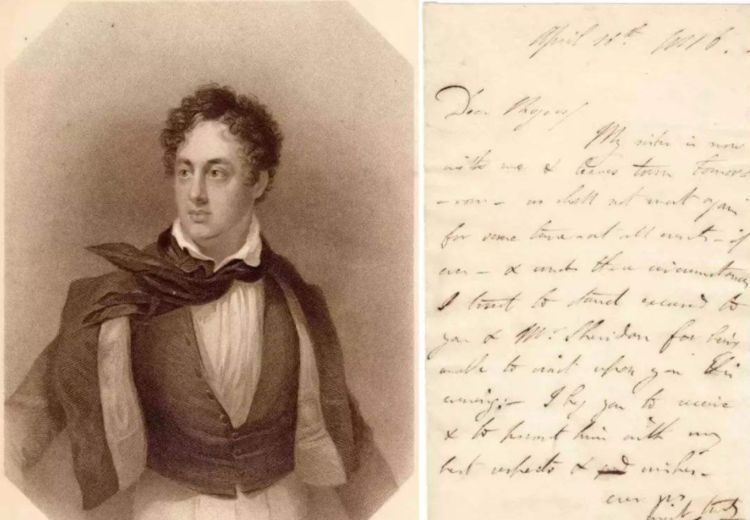 April 14th 1816.
Dear Rogers/
My sister is now
with me & leaves town tomor
-row - we shall not meet again
for some time at all events - if
ever - & under these circumstances
I trust to stand excused to
you & Mr Sheridan for being
unable to wait upon you this
evening. - I beg you to receive
& to present him with my
best respects & wishes -
ever yrs